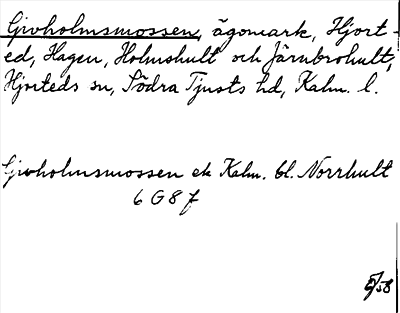 Givholmsmossen, ägomark, Hjort-
ed, Hagen, Holmshult och Järnbrohult,
Hjorteds sn, Södra Tjusts hd, Kalm. l.
Givholmsmossen ek Kalm. bl. Norrhult
6 G 8 f
5/58